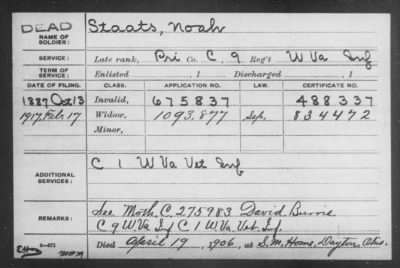 DEAD
NAME OF SOLDIER: Staats, Noah
SERVICE: Late rank, Pri Co. C, 9 Reg't W Va Inf
TERM OF SERVICE: Enlisted , 1 Discharged , 1
DATE OF FILING. CLASS. APPLICATION NO. LAW. CERTIFICATE NO.
1887 Oct 13 Invalid, 675837 488337
1917 Feb 17 Widow, 1093.877 834472
Minor,
ADDITIONAL SERVICES: C 1 W Va Vet Inf
REMARKS: See Moth. C. 275983 David Burris
C 9 W Va Inf C 1 W Va. Vet. Inf.
Died April 19, 1906, at S.M. Home, Dayton, Ohio.